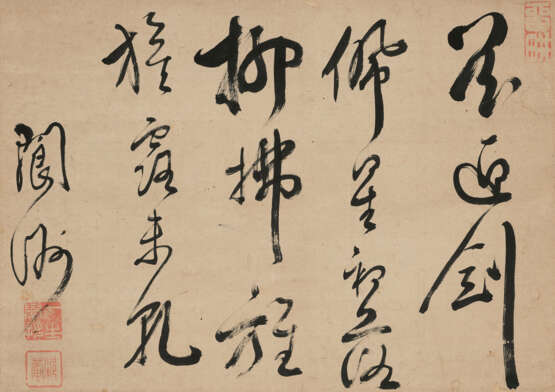 花迎剑
佩星初落
柳拂旌
旗露未乾
阆洲